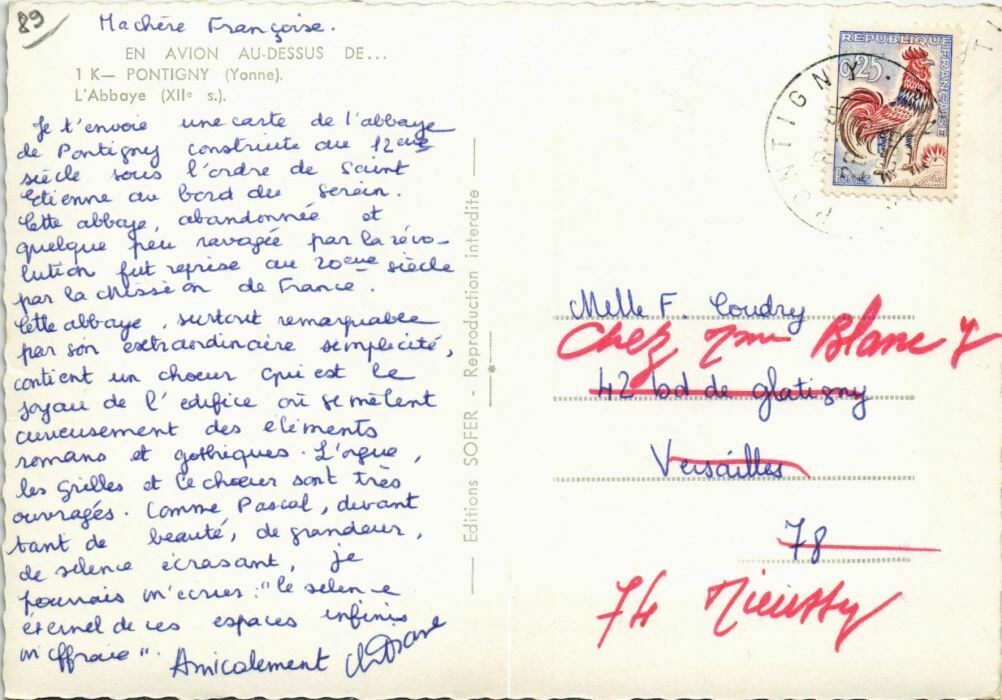 89
Ma chère Françoise.
EN AVION AU-DESSUS DE...
1 K— PONTIGNY (Yonne).
L'Abbaye (XIIe s.).
Je t'envoie une carte de l'abbaye
de Pontigny construite au 12ème
siècle sous l'ordre de Saint
Etienne au bord du Serein.
Cette abbaye, abandonnée et
quelque peu ravagée par la révo-
lution fut reprise au 20ème siècle
par la Mission de France.
Cette abbaye, surtout remarquable
par son extraordinaire simplicité,
contient un choeur qui est le
joyau de l'edifice où se mêlent
curieusement des eléments
romans et gothiques. L'orgue,
les grilles et le choeur sont très
ouvragés. Comme Pascal, devant
tant de beauté, de grandeur,
de silence écrasant, je
pourrais m'écrier: "le silen-e
éternel de ces espaces infinis
m'effraie". Amicalement
Editions SOFER - Reproduction interdite
REPUBLIQUE FRANÇAISE
0,25
PONTIGNY
YONNE
Melle F. Coudry
Chez Mme Blanc
42 bd de Glatigny
Versailles
78
74 Mieussy